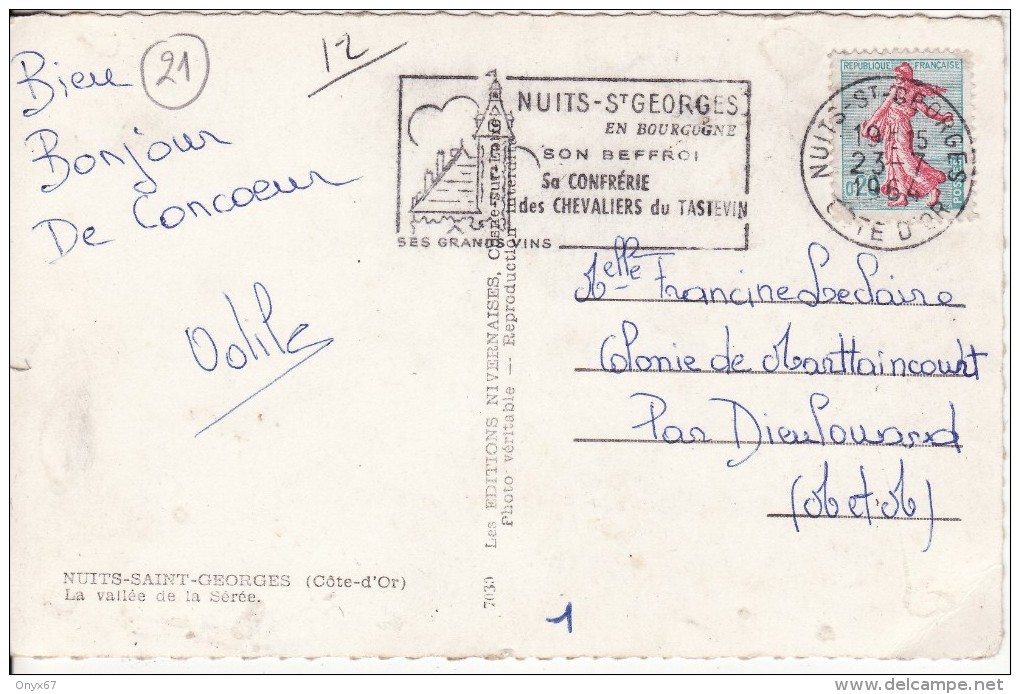 Bien
Bonjour
De Concoeur
Odile
21
12
NUITS-ST GEORGES
EN BOURGOGNE
SON BEFFROI
Sa CONFRÉRIE
des CHEVALIERS du TASTEVIN
SES GRANDS VINS
REPUBLIQUE FRANÇAISE
POSTES
NUITS-ST-GEORGES
23-7
1964
COTE D'OR
Melle Francine Leclaire
Colonie de Marttaincourt
Par Dieulouard
(M et M)
Les EDITIONS NIVERNAISES, Cosne-sur-Loire
Photo véritable -- Reproduction interdite
7030
NUITS-SAINT-GEORGES (Côte-d'Or)
La vallée de la Sérée.
1
Onyx67
delcampe.net